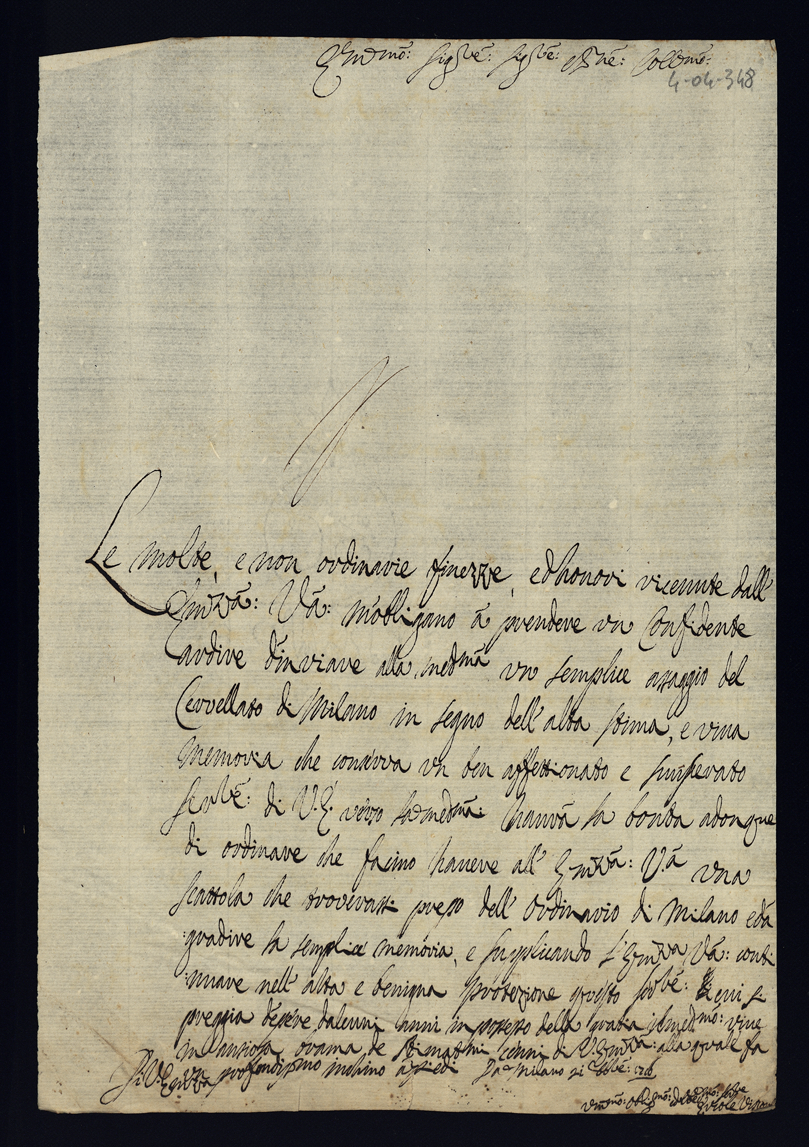 Sig.re Sig.re Coll.mo:
4-04-348
Le molte, e non ordinarie finezze, ed honori riceunte dall'
Em.za: V.a: m'obligano à prendere un Confidente
ardire d'inviare alla med.ma un semplice assaggio del
Cervellato di Milano in segno dell'alta stima, e viva
memoria che conserva un ben affettionato e
Ser.re: di V.E. verso la med.ma: Haurà la bontà adonque
di ordinare che facino havere all' Em.za: V.a una
scattola che troverassi presso dell'Ordinario di Milano ed à
gradire la semplice memoria, e suplicando l'Em.za V.a: conti
nuare nell'alta e benigna protezione questo ser.re: che si
preggia d'essere da alcuni anni in possesso della gratia
brama de stimatissimi cenni di V. Em.za: alla quale fa
profondissimo inchino à piedi Da Milano
Di V. Em.za